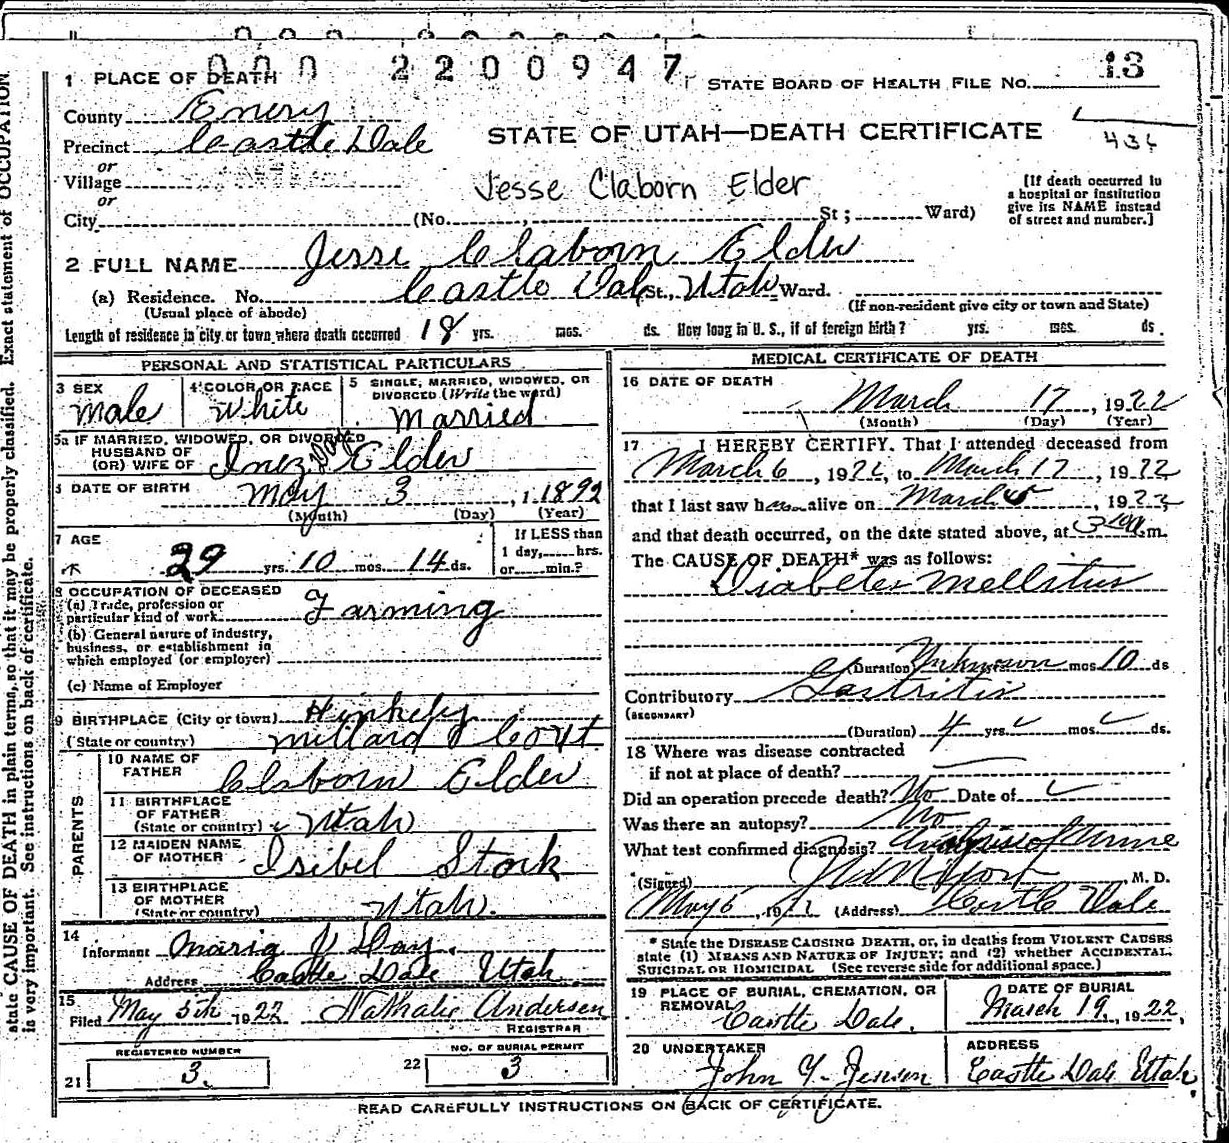 000 2200947
1 PLACE OF DEATH
STATE BOARD OF HEALTH FILE NO. 13
County Emery
STATE OF UTAH—DEATH CERTIFICATE
Precinct Castle Dale
or
Village
or
Jesse Claborn Elder
[If death occurred in a hospital or institution give its NAME instead of street and number.]
City (No. , St; Ward)
2 FULL NAME Jesse Claborn Elder
(a) Residence. No. Castle Dale St., Utah Ward.
(Usual place of abode) (If non-resident give city or town and State)
Length of residence in city or town where death occurred 18 yrs. mos. ds. How long in U. S., if of foreign birth? yrs. mos. ds.
PERSONAL AND STATISTICAL PARTICULARS
3 SEX Male
4 COLOR OR RACE White
5 SINGLE, MARRIED, WIDOWED, OR DIVORCED (Write the word) Married
5a IF MARRIED, WIDOWED, OR DIVORCED
HUSBAND OF
(OR) WIFE OF Inez Day Elder
DATE OF BIRTH May 3, 1892
(Month) (Day) (Year)
7 AGE 29 yrs. 10 mos. 14 ds.
If LESS than
1 day, hrs.
or min.?
8 OCCUPATION OF DECEASED
(a) Trade, profession or
particular kind of work Farming
(b) General nature of industry,
business, or establishment in
which employed (or employer)
(c) Name of Employer
9 BIRTHPLACE (City or town) Hinkely
(State or country) Millard Co Ut
PARENTS
10 NAME OF FATHER Claborn Elder
11 BIRTHPLACE OF FATHER (State or country) Utah
12 MAIDEN NAME OF MOTHER Isibel Stork
13 BIRTHPLACE OF MOTHER (State or country) Utah.
14
Informant Maria V Day.
Address Castle Dale Utah
15
Filed May 5th 1922 Nathalie Andersen
REGISTRAR
REGISTERED NUMBER
21 3.
NO. OF BURIAL PERMIT
22 3
MEDICAL CERTIFICATE OF DEATH
16 DATE OF DEATH
March 17, 1922
(Month) (Day) (Year)
17 I HEREBY CERTIFY, That I attended deceased from
March 6, 1922, to March 17, 1922
that I last saw him alive on March 1922
and that death occurred, on the date stated above, at 3 m.
The CAUSE OF DEATH* was as follows:
Diabetes Mellitus
(Duration) Unknown mos 10 ds
Contributory Gastritis
(SECONDARY)
(Duration) 4 yrs. mos. ds.
18 Where was disease contracted
if not at place of death?
Did an operation precede death? No Date of
Was there an autopsy? No
What test confirmed diagnosis? Analysis of Urine
(Signed) M. D.
May 5, 1922 (Address) Castle Dale
* State the DISEASE CAUSING DEATH, or, in deaths from VIOLENT CAUSES
state (1) MEANS AND NATURE OF INJURY; and (2) whether ACCIDENTAL,
SUICIDAL OR HOMICIDAL (See reverse side for additional space.)
19 PLACE OF BURIAL, CREMATION, OR REMOVAL Castle Dale.
DATE OF BURIAL
March 19, 1922,
20 UNDERTAKER
John Y. Jensen
ADDRESS
Castle Dale Utah
READ CAREFULLY INSTRUCTIONS ON BACK OF CERTIFICATE.
state CAUSE OF DEATH in plain terms, so that it may be properly classified. Exact statement of OCCUPATION
is very important. See instructions on back of certificate.